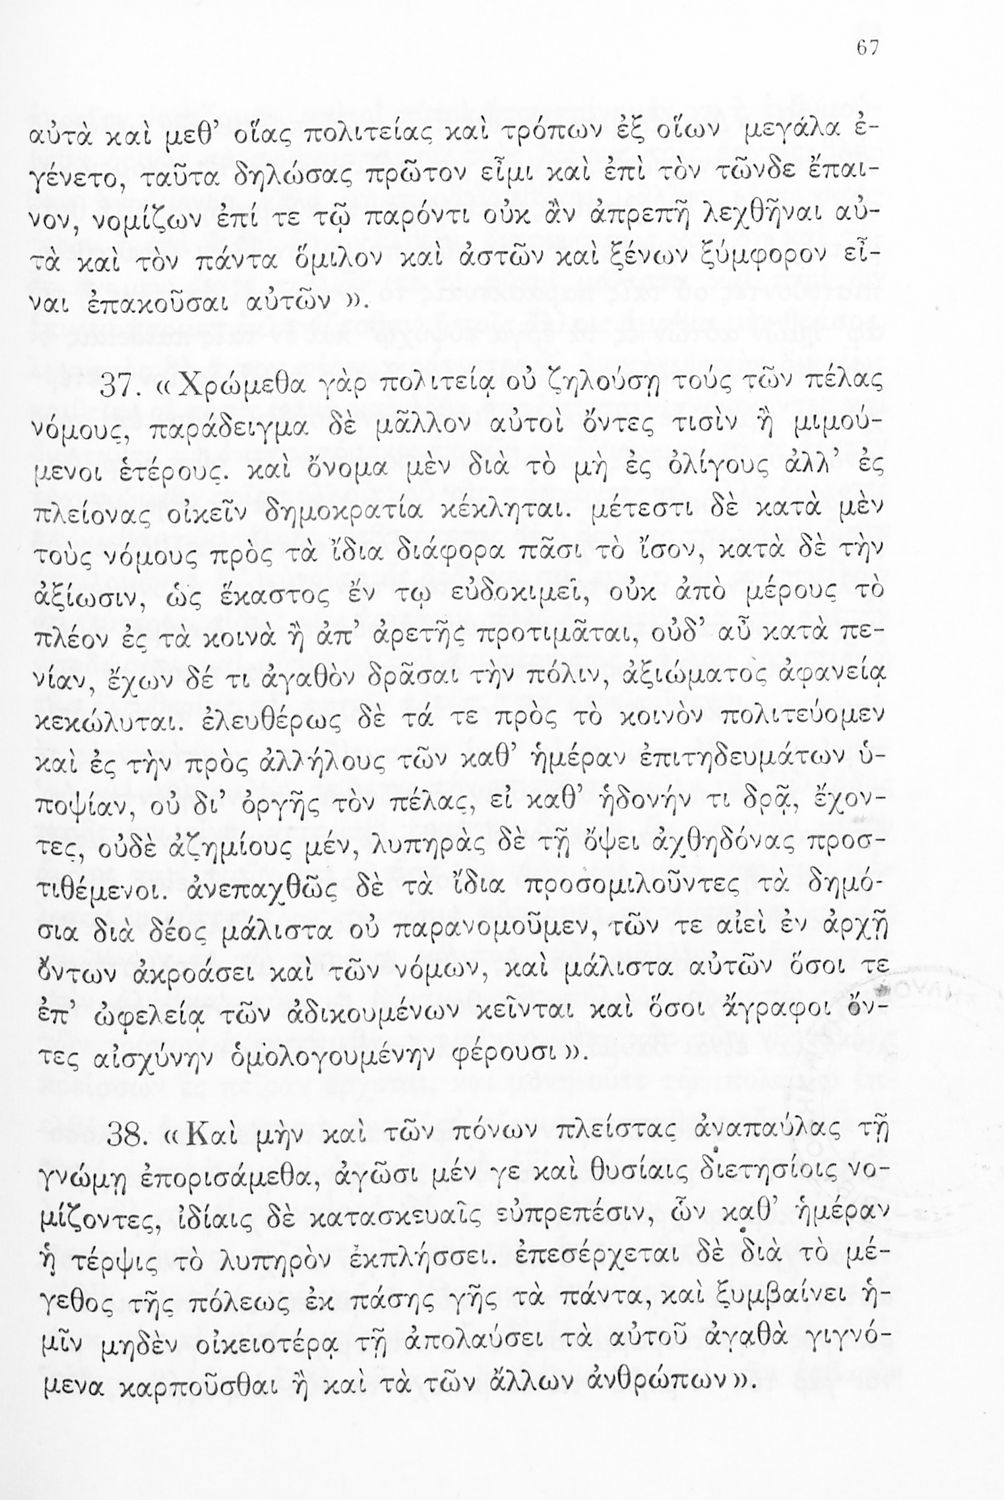 67
αὐτὰ καὶ μεθ’ οἵας πολιτείας καὶ τρόπων ἐξ οἵων μεγάλα ἐ-
γένετο, ταῦτα δηλώσας πρῶτον εἶμι καὶ ἐπὶ τὸν τῶνδε ἔπαι-
νον, νομίζων ἐπί τε τῷ παρόντι οὐκ ἂν ἀπρεπῆ λεχθῆναι αὐ-
τὰ καὶ τὸν πάντα ὅμιλον καὶ ἀστῶν καὶ ξένων ξύμφορον εἶ-
ναι ἐπακοῦσαι αὐτῶν ».
37. « Χρώμεθα γὰρ πολιτείᾳ οὐ ζηλούσῃ τούς τῶν πέλας
νόμους, παράδειγμα δὲ μᾶλλον αὐτοὶ ὄντες τισὶν ἢ μιμού-
μενοι ἑτέρους. καὶ ὄνομα μὲν διὰ τὸ μὴ ἐς ὀλίγους ἀλλ’ ἐς
πλείονας οἰκεῖν δημοκρατία κέκληται. μέτεστι δὲ κατὰ μὲν
τοὺς νόμους πρὸς τὰ ἴδια διάφορα πᾶσι τὸ ἴσον, κατὰ δὲ τὴν
ἀξίωσιν, ὡς ἕκαστος ἔν τῳ εὐδοκιμεῖ, οὐκ ἀπὸ μέρους τὸ
πλέον ἐς τὰ κοινὰ ἢ ἀπ’ ἀρετῆς προτιμᾶται, οὐδ’ αὖ κατὰ πε-
νίαν, ἔχων δέ τι ἀγαθὸν δρᾶσαι τὴν πόλιν, ἀξιώματος ἀφανείᾳ
κεκώλυται. ἐλευθέρως δὲ τά τε πρὸς τὸ κοινὸν πολιτεύομεν
καὶ ἐς τὴν πρὸς ἀλλήλους τῶν καθ’ ἡμέραν ἐπιτηδευμάτων ὑ-
ποψίαν, οὐ δι’ ὀργῆς τὸν πέλας, εἰ καθ’ ἡδονήν τι δρᾷ, ἔχον-
τες, οὐδὲ ἀζημίους μέν, λυπηρὰς δὲ τῇ ὄψει ἀχθηδόνας προσ-
τιθέμενοι. ἀνεπαχθῶς δὲ τὰ ἴδια προσομιλοῦντες τὰ δημό-
σια διὰ δέος μάλιστα οὐ παρανομοῦμεν, τῶν τε αἰεὶ ἐν ἀρχῇ
ὄντων ἀκροάσει καὶ τῶν νόμων, καὶ μάλιστα αὐτῶν ὅσοι τε
ἐπ’ ὠφελείᾳ τῶν ἀδικουμένων κεῖνται καὶ ὅσοι ἄγραφοι ὄν-
τες αἰσχύνην ὁμολογουμένην φέρουσι ».
38. « Καὶ μὴν καὶ τῶν πόνων πλείστας ἀναπαύλας τῇ
γνώμῃ ἐπορισάμεθα, ἀγῶσι μέν γε καὶ θυσίαις διετησίοις νο-
μίζοντες, ἰδίαις δὲ κατασκευαῖς εὐπρεπέσιν, ὧν καθ’ ἡμέραν
ἡ τέρψις τὸ λυπηρὸν ἐκπλήσσει. ἐπεσέρχεται δὲ διὰ τὸ μέ-
γεθος τῆς πόλεως ἐκ πάσης γῆς τὰ πάντα, καὶ ξυμβαίνει ἡ-
μῖν μηδὲν οἰκειοτέρᾳ τῇ ἀπολαύσει τὰ αὐτοῦ ἀγαθὰ γιγνό-
μενα καρποῦσθαι ἢ καὶ τὰ τῶν ἄλλων ἀνθρώπων ».